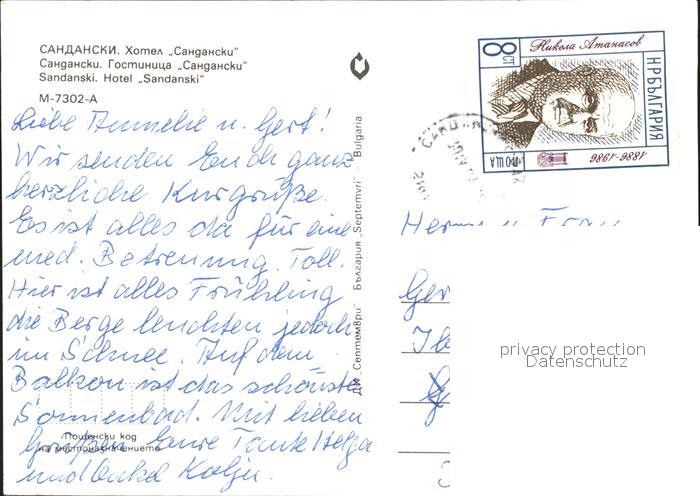 САНДАНСКИ. Хотел „Сандански“
Сандански. Гостиница „Сандански“
Sandanski. Hotel „Sandanski“
М-7302-А
Liebe Annelie u. Gert!
Wir senden Euch ganz
herzliche Kurgrüße.
Es ist alles da für eine
med. Betreuung. Toll.
Hier ist alles Frühling
die Berge leuchten jedoch
im Schnee. Auf dem
Balkon ist das schönste
Sonnenbad. Mit lieben
Grüßen Eure Tante Helga
und Onkel
Пощенски код
на местоназначението
ДИ „Септември“ България „Septemvri“ - Bulgaria
8 СТ
Никола Атанасов
НРБЪЛГАРИЯ
ПОЩА
1886-1986
Herrn u. Frau
Ger
privacy protection
Datenschutz